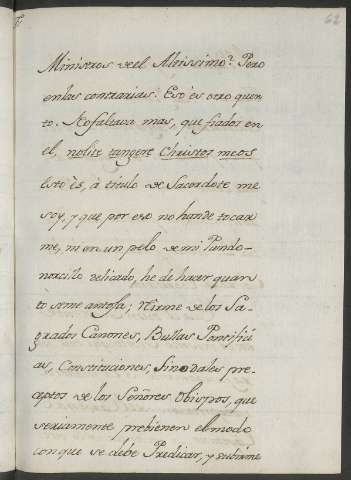 62
Ministros del Altissimo? Pero
en las contrarias? Esó és otro quen
to. No faltava mas, que fiados en
el, nolite tangere Christos meos
esto és, à titulo de Sacerdote me
soy, y que por eso no hande tocar
me, ni en un pelo de mi Pundo-
norcillo delicado, he de hacer quan
tò se me antoja; Reirme de los Sa-
grados Canones, Bullas Pontifici
as, Constituciones, Sinodales pre-
ceptos de los Señores Obispos, que
seriamente prebienen el modo
con que se debe Predicar, y subirme